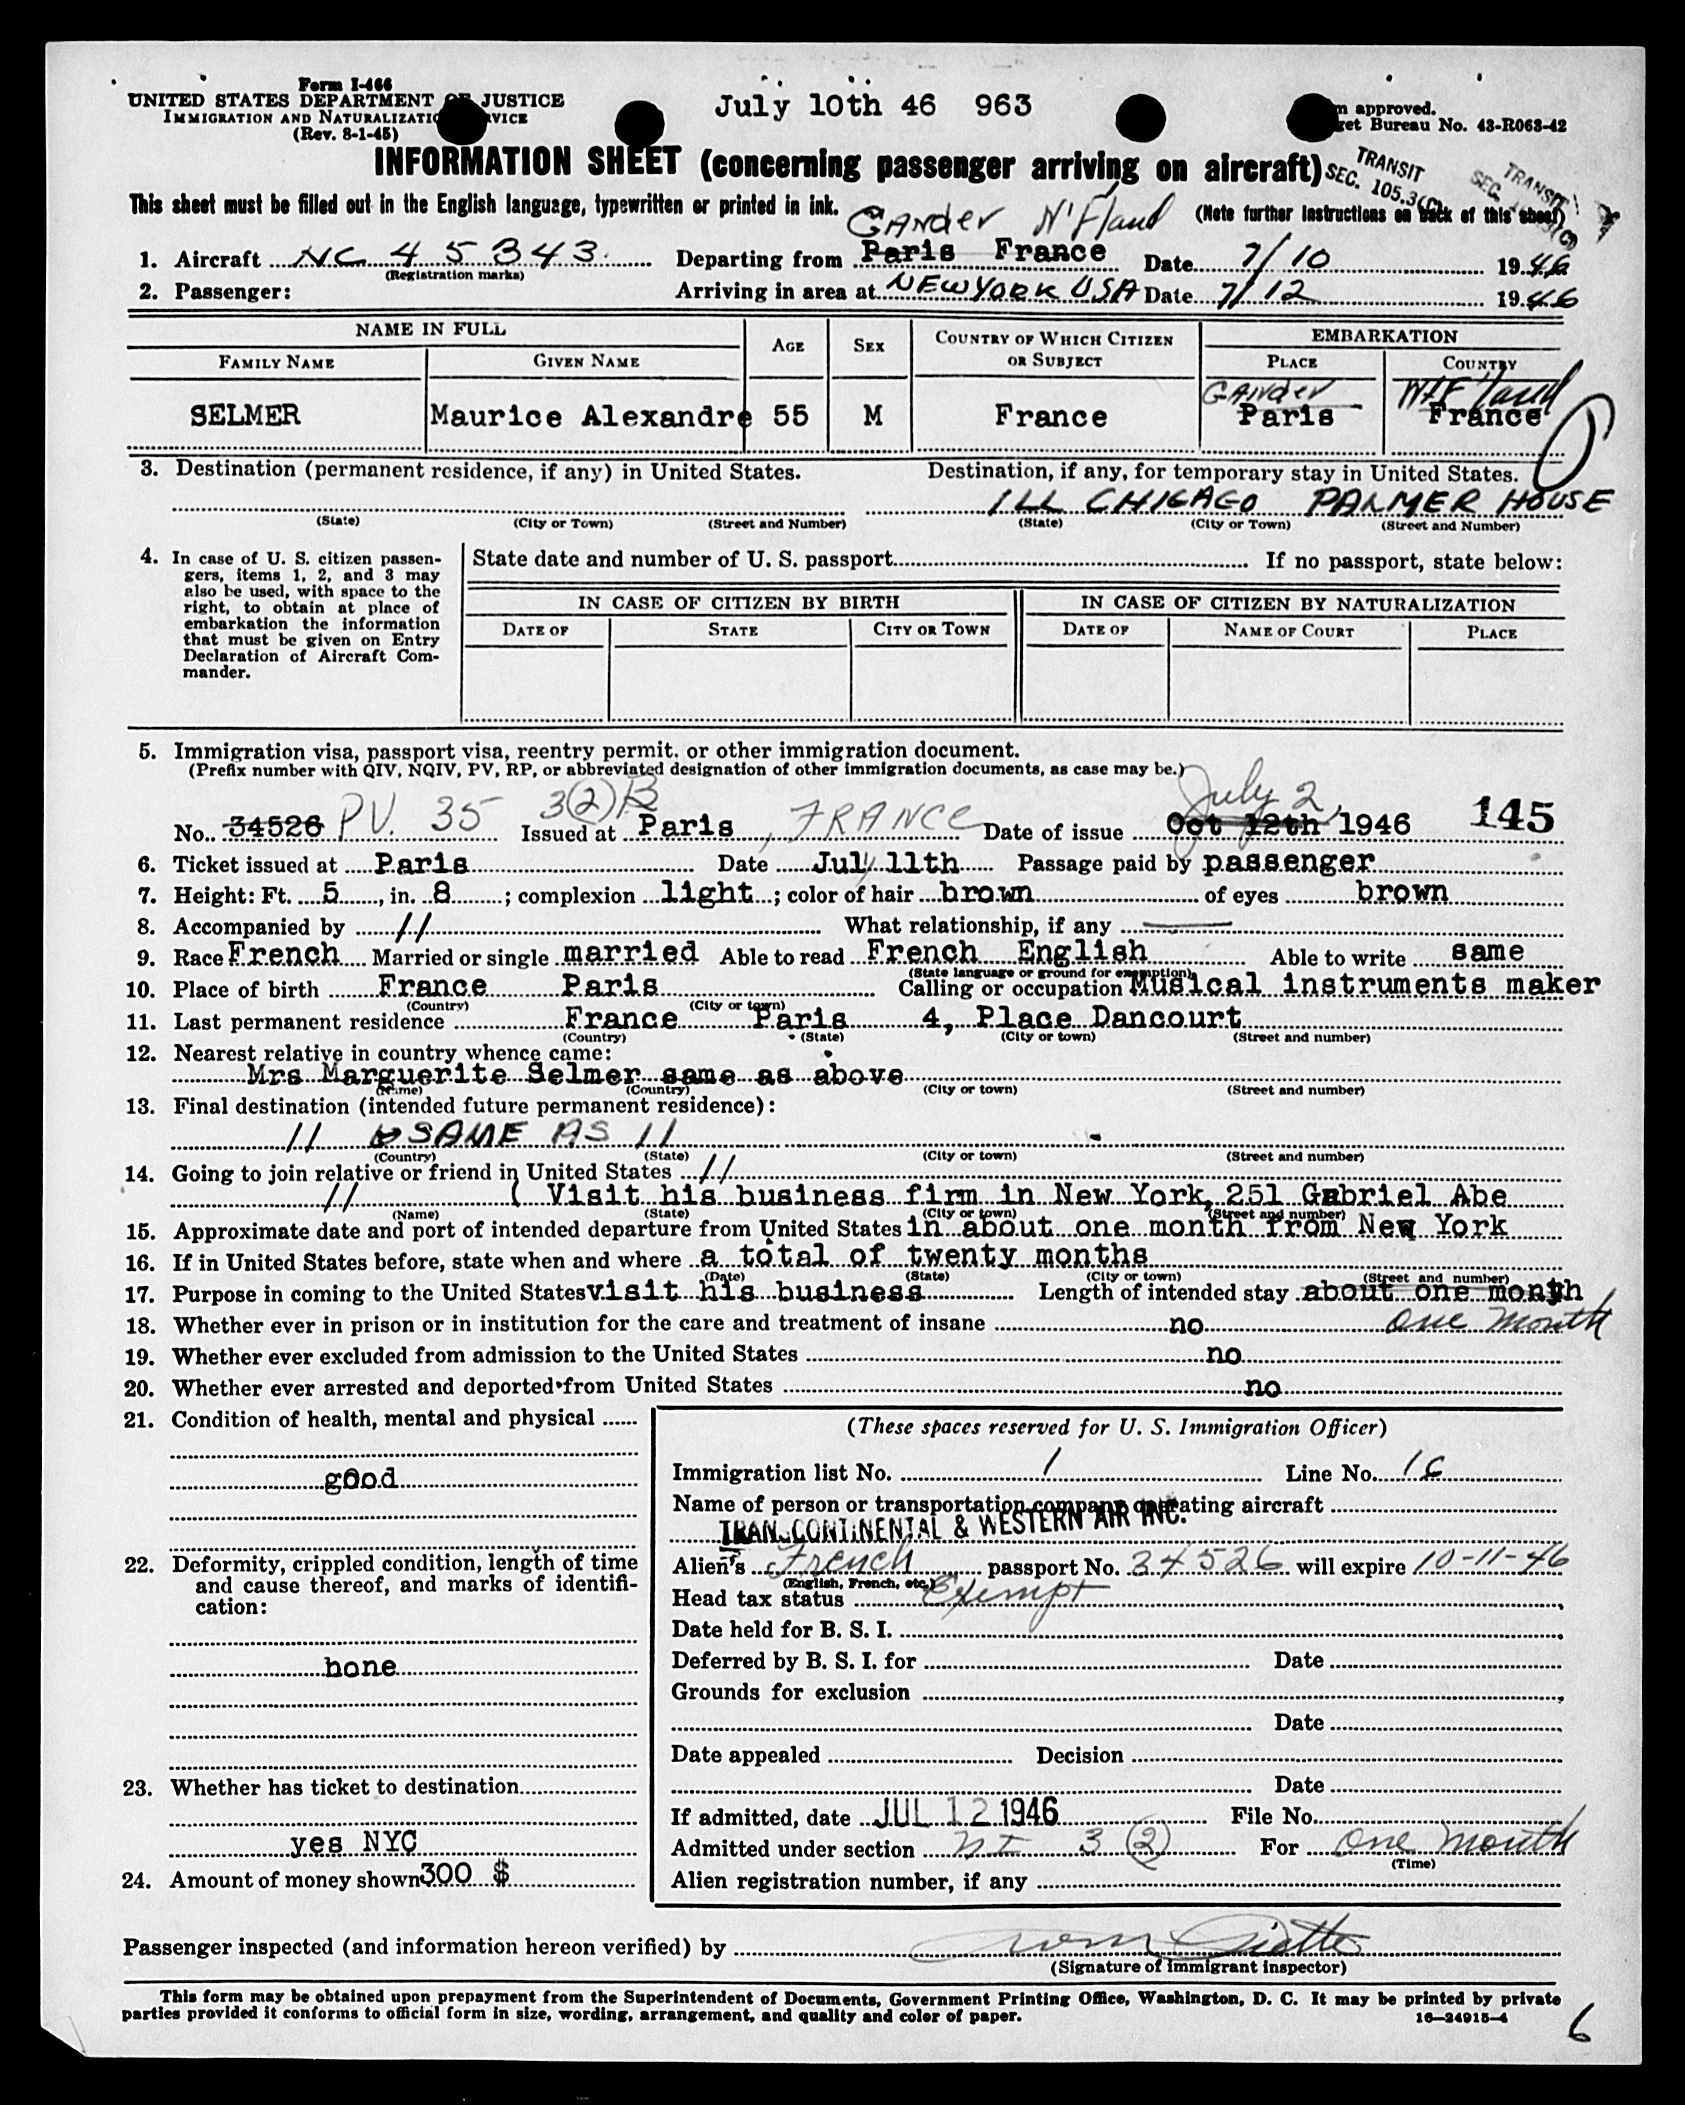 Form I-466
UNITED STATES DEPARTMENT OF JUSTICE
IMMIGRATION AND NATURALIZATION SERVICE
(Rev. 8-1-45)
July 10th 46 963
approved.
Bureau No. 43-R063-42
INFORMATION SHEET (concerning passenger arriving on aircraft)
TRANSIT SEC. 105.3(C)
TRANSIT
SEC.
This sheet must be filled out in the English language, typewritten or printed in ink.
(Note further instructions on back of this sheet)
Gander N'Fland
1. Aircraft NC 45343 Departing from Paris France Date 7/10 1946
(Registration marks)
2. Passenger: Arriving in area at NEW YORK USA Date 7/12 1946
NAME IN FULL AGE SEX COUNTRY OF WHICH CITIZEN OR SUBJECT EMBARKATION
FAMILY NAME GIVEN NAME PLACE COUNTRY
Gander N'Fland
SELMER Maurice Alexandre 55 M France Paris France
3. Destination (permanent residence, if any) in United States. Destination, if any, for temporary stay in United States.
ILL CHICAGO PALMER HOUSE
(State) (City or Town) (Street and Number) (State) (City or Town) (Street and Number)
4. In case of U. S. citizen passen-
gers, items 1, 2, and 3 may
also be used, with space to the
right, to obtain at place of
embarkation the information
that must be given on Entry
Declaration of Aircraft Com-
mander.
State date and number of U. S. passport If no passport, state below:
IN CASE OF CITIZEN BY BIRTH IN CASE OF CITIZEN BY NATURALIZATION
DATE OF STATE CITY OR TOWN DATE OF NAME OF COURT PLACE
5. Immigration visa, passport visa, reentry permit, or other immigration document.
(Prefix number with QIV, NQIV, PV, RP, or abbreviated designation of other immigration documents, as case may be.)
3(2)B July 2,
No. 34526 PV. 35 Issued at Paris, FRANCE Date of issue Oct 12th 1946 145
6. Ticket issued at Paris Date July 11th Passage paid by passenger
7. Height: Ft. 5, in. 8; complexion light; color of hair brown of eyes brown
8. Accompanied by // What relationship, if any —
9. Race French Married or single married Able to read French English Able to write same
(State language or ground for exemption)
10. Place of birth France Paris Calling or occupation Musical instruments maker
(Country) (City or town)
11. Last permanent residence France Paris 4, Place Dancourt
(Country) (State) (City or town) (Street and number)
12. Nearest relative in country whence came:
Mrs Marguerite Selmer same as above
(Name) (Country) (City or town) (Street and number)
13. Final destination (intended future permanent residence):
// SAME AS 11
(Country) (State) (City or town) (Street and number)
14. Going to join relative or friend in United States //
// ( Visit his business firm in New York, 251 Gabriel Abe
(Name) (State) (City or town) (Street and number)
15. Approximate date and port of intended departure from United States in about one month from New York
16. If in United States before, state when and where a total of twenty months
(Date) (State) (City or town) (Street and number)
17. Purpose in coming to the United States visit his business Length of intended stay about one month
18. Whether ever in prison or in institution for the care and treatment of insane no one month
19. Whether ever excluded from admission to the United States no
20. Whether ever arrested and deported from United States no
21. Condition of health, mental and physical
good
22. Deformity, crippled condition, length of time
and cause thereof, and marks of identifi-
cation:
hone
23. Whether has ticket to destination
yes NYC
24. Amount of money shown 300 $
(These spaces reserved for U. S. Immigration Officer)
Immigration list No. 1 Line No. 16
Name of person or transportation company operating aircraft
TRANSCONTINENTAL & WESTERN AIR INC.
Alien's French passport No. 34526 will expire 10-11-46
(English, French, etc.)
Head tax status Exempt
Date held for B. S. I.
Deferred by B. S. I. for Date
Grounds for exclusion
Date
Date appealed Decision
Date
If admitted, date JUL 12 1946 File No.
Admitted under section NI 3 (2) For one month
(Time)
Alien registration number, if any
Passenger inspected (and information hereon verified) by
(Signature of immigrant inspector)
This form may be obtained upon prepayment from the Superintendent of Documents, Government Printing Office, Washington, D. C. It may be printed by private
parties provided it conforms to official form in size, wording, arrangement, and quality and color of paper.
16—24915-4
6